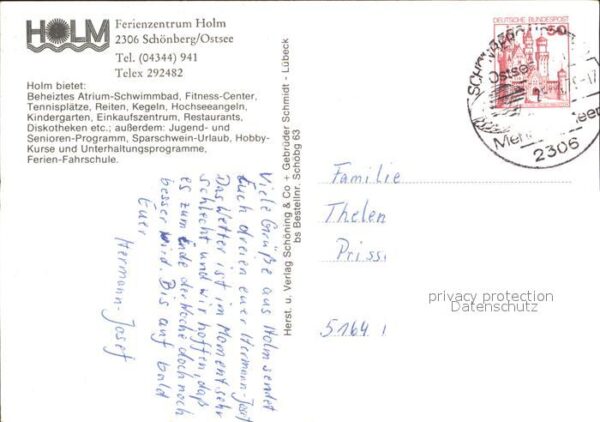 HOLM
Ferienzentrum Holm
2306 Schönberg/Ostsee
Tel. (04344) 941
Telex 292482
Holm bietet:
Beheiztes Atrium-Schwimmbad, Fitness-Center,
Tennisplätze, Reiten, Kegeln, Hochseeangeln,
Kindergarten, Einkaufszentrum, Restaurants,
Diskotheken etc.; außerdem: Jugend- und
Senioren-Programm, Sparschwein-Urlaub, Hobby-
Kurse und Unterhaltungsprogramme,
Ferien-Fahrschule.
Viele Grüße aus Holm sendet
Euch dreien euer Hermann-Josef
Das Wetter ist im Moment sehr
schlecht und wir hoffen, daß
es zum Ende der Woche doch noch
besser wird. Bis auf bald
Euer
Hermann-Josef
Herst. u. Verlag Schöning & Co + Gebrüder Schmidt - Lübeck
bs Bestellnr. Schöbg 63
DEUTSCHE BUNDESPOST
50
Ostsee
2306
Familie
Thelen
Priss.
5164
privacy protection
Datenschutz